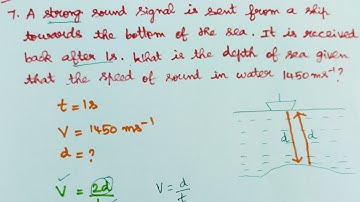 7. A strong sound signal is sent from a ship
towards the bottom of the sea. It is received
back after 1s. What is the depth of sea given
that the speed of sound in water 1450 ms⁻¹?
t = 1s
V = 1450 ms⁻¹
d = ?
d d
V = 2d V = d/t